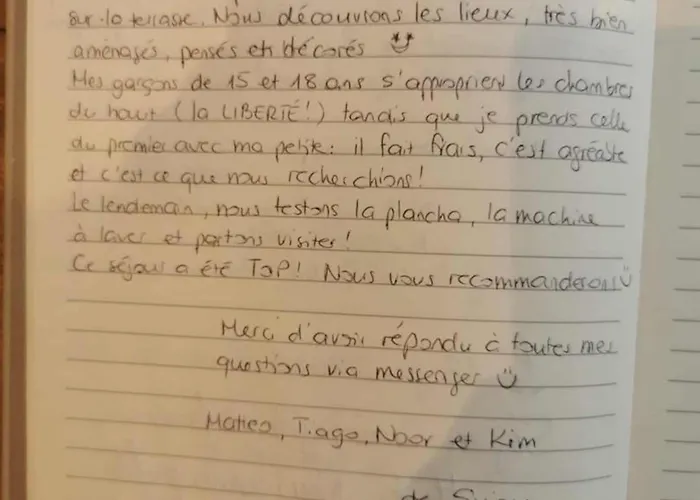 sur la terrasse. Nous découvrons les lieux, très bien
aménagés, pensés et décorés
Mes garçons de 15 et 18 ans s'approprient les chambres
du haut (la LIBERTÉ!) tandis que je prends celle
du premier avec ma petite : il fait frais, c'est agréable
et c'est ce que nous recherchions!
Le lendemain, nous testons la plancha, la machine
à laver et partons visiter!
Ce séjour a été TOP! Nous vous recommanderons
Merci d'avoir répondu à toutes mes
questions via messenger
Matteo, Tiago, Noor et Kim
de